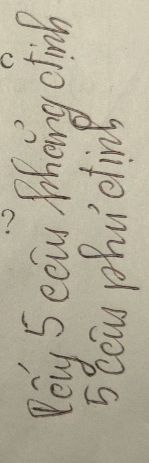 Lấy 5 câu khẳng định
5 câu phủ định